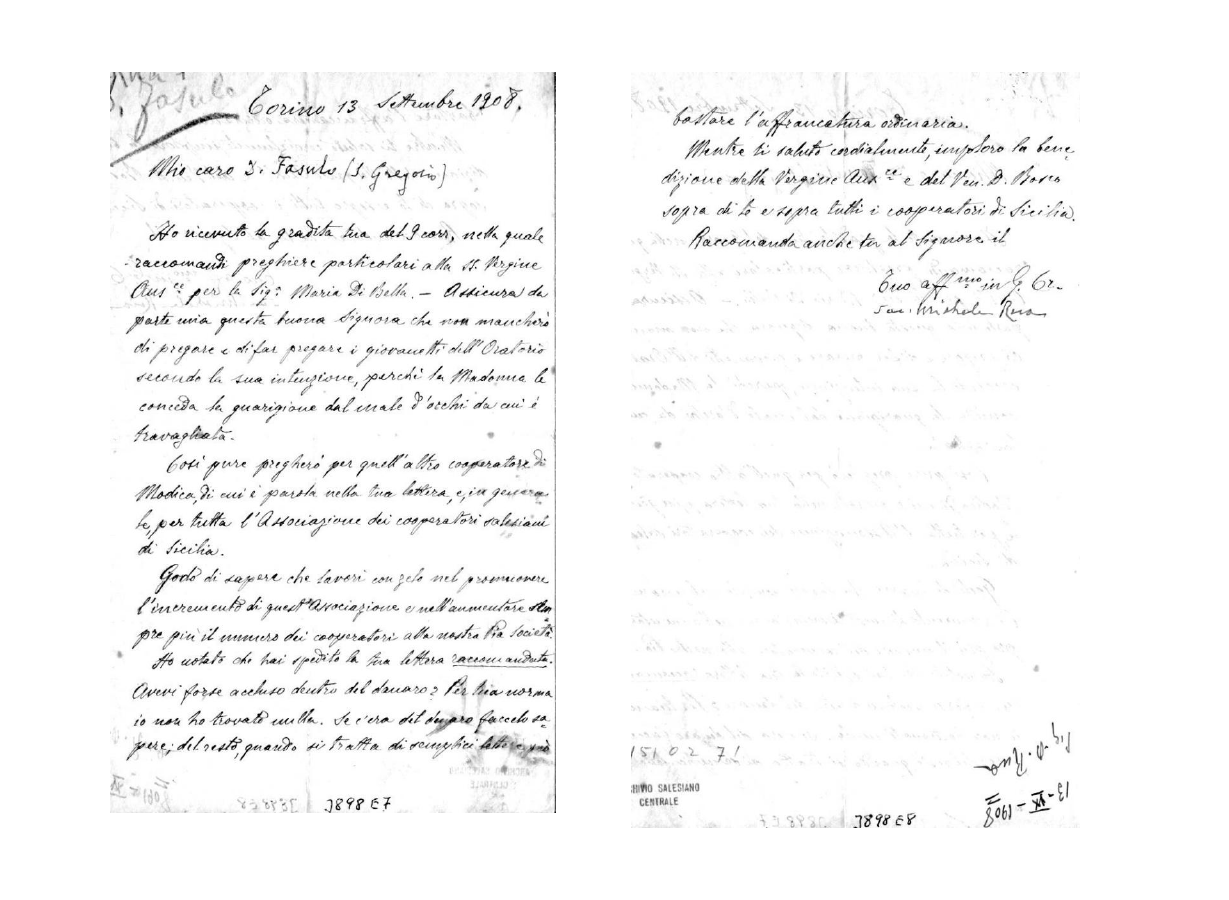 S. Fasulo
Torino 13 Settembre 1908.
Mio caro D. Fasulo (S. Gregorio)
Ho ricevuto la gradita tua del 9 corr, nella quale
raccomandi preghiere particolari alla SS. Vergine
Aus.ce per la Sig.ra Maria Di Bella. — Assicura da
parte mia questa buona Signora che non mancherò
di pregare e di far pregare i giovanetti dell'Oratorio
secondo la sua intenzione, perchè la Madonna le
conceda la guarigione dal male d'occhi da cui è
travagliata.
Così pure pregherò per quell'altro cooperatore di
Modica, di cui è parola nella tua lettera, e, in genera
le, per tutta l'Associazione dei cooperatori salesiani
di Sicilia.
Godo di sapere che lavori con zelo nel promuovere
l'incremento di quest'Associazione e nell'aumentare sem
pre più il numero dei cooperatori alla nostra Pia Società.
Ho notato che hai spedito la tua lettera raccomandata.
Avevi forse accluso dentro del danaro? Per tua norma
io non ho trovato nulla. Se c'era del danaro faccelo sa
pere; del resto, quando si tratta di semplici lettere può
J898 E7
bastare l'affrancatura ordinaria.
Mentre ti saluto cordialmente, imploro la bene
dizione della Vergine Aus.ce e del Ven. D. Bosco
sopra di te e sopra tutti i cooperatori di Sicilia.
Raccomanda anche tu al Signore il
Tuo aff.mo in G. Cr.
Sac. Michele Rua
151027
ARCHIVIO SALESIANO
CENTRALE
J898 E8
Sig. D. Rua
13-IX-1908